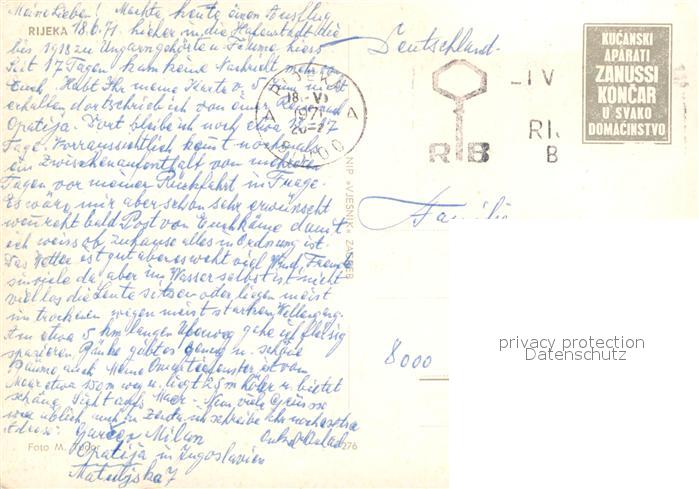 Meine Lieben! Machte heute einen Ausflug
RIJEKA 18.6.71. hieher in die Hafenstadt die
bis 1918 zu Ungarn gehörte u. Fiume hiess
Seit 17 Tagen kam keine Nachricht mehr von
Euch. Habt Ihr meine Karte v. 5 Juni nicht
erhalten dort schrieb ich von
Opatija. Dort bleibe ich noch etwa 17
Tage. Voraussichtlich kommt nochmals
ein Zwischenaufenthalt von mehreren
Tagen vor meiner Rückfahrt in Frage.
Es wäre mir aber schon sehr erwünscht
wenn recht bald Post von Euch käme damit
ich weiss ob zuhause alles in Ordnung ist.
Das Wetter ist gut aber es weht viel Wind, Fremde
sind viele da aber im Wasser selbst ist nicht
viel los die Leute sitzen oder liegen meist
im trockenen wegen meist starkem Wellengang.
Am etwa 5 km langen Uferweg gehe ich fleissig
spazieren Bänke gibt es genug u. schöne
Bäume auch. Meine Quartierfenster ist vom
Meer etwa 150 m weg u. liegt 25 m höher u. bietet
schöne Sicht aufs Meer - Nun viele Grüsse
wie üblich, auch zu Zenta, ich schreibe Ihr noch extra
Adresse: Milan
Opatija in Jugoslavien
Matuljska 7
Foto M.
276
NIP »VJESNIK« ZAGREB
Deutschland.
RIJEKA
18.-VI
1971
20-
A A
51000
RIB
-IV
RI.
B
KUĆANSKI
APARATI
ZANUSSI
KONČAR
U SVAKO
DOMAĆINSTVO
Familie
8000
privacy protection
Datenschutz